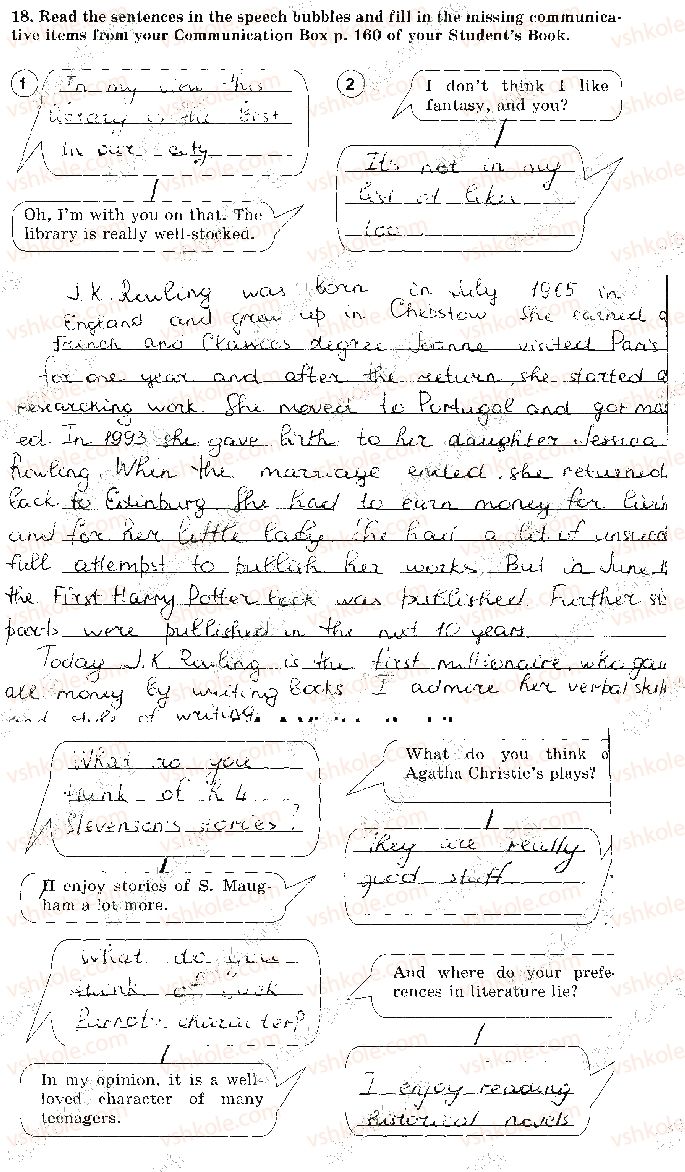 18. Read the sentences in the speech bubbles and fill in the missing communica-
tive items from your Communication Box p. 160 of your Student's Book.
1
In my view this
library is the best
in our city
Oh, I'm with you on that. The
library is really well-stocked.
2
I don't think I like
fantasy, and you?
It's not in my
list of likes
too
J.K. Rowling was born in July 1965 in
England and grew up in Chepstow She earned a
French and Classics degree Joanne visited Paris
for one year and after the return, she started a
researching work. She moved to Portugal and got mar
ed. In 1993 she gave birth to her daughter Jessica
Rowling. When the marriage ended, she returned
back to Edinburg She had to earn money for livin
and for her little lady. She had a lot of unsucc
full attempst to publish her works. But in June
the First Harry Potter book was published. Further si
parts were published in the next 10 years.
Today J.K Rowling is the first millionaire who gain
all money by writing books I admire her verbal skill
and style of writing
What do you
think of R L
Stevenson's stories?
II enjoy stories of S. Maug-
ham a lot more.
What do you think o
Agatha Christie's plays?
They are really
good stuff
What do you
think of such
character?
In my opinion, it is a well-
loved character of many
teenagers.
And where do your prefe-
rences in literature lie?
I enjoy reading
historical novels
vshkole.com